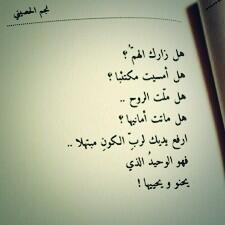 نجم الحصيني
هل زارك الهمّ ؟
هل أمسيت مكتئبا ؟
هل ملّت الروح ..
هل ماتت أمانيها ؟
ارفع يديك لربِّ الكونِ مبتهلا ..
فهو الوحيدُ الذي
يحنو و يحييها !